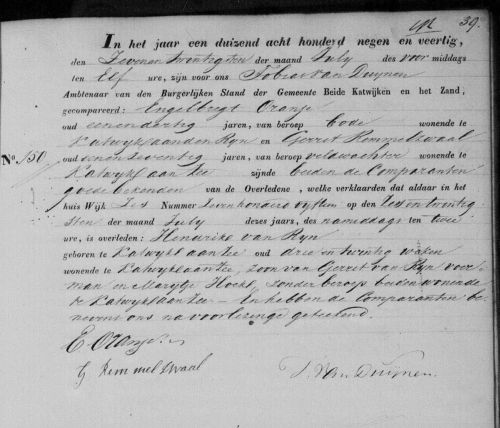 39.
In het jaar een duizend acht honderd negen en veertig,
den Zevenentwintigsten der maand July des voormiddags
ten Elf ure, zijn voor ons Tobias van Duynen
Ambtenaar van den Burgerlijken Stand der Gemeente Beide Katwijken en het Zand,
gecompareerd: Engelbregt Oranje
oud eenendertig jaren, van beroep bode wonende te
Katwyk aanden Ryn en Gerret Remmelzwaal
No. 150 oud eenenzeventig jaren, van beroep veldwachter wonende te
Katwyk aan Zee zijnde beiden de Comparanten
goede bekenden van de Overledene, welke verklaarden dat aldaar in het
huis Wijk Zes Nummer Zevenhonderd vyftien op den Zesentwintig
sten der maand July dezes jaars, des nameddags ten twee
ure, is overleden: Hendrikus van Ryn
geboren te Katwyk aan Zee oud drie en twintig weken
wonende te Katwyk aan Zee, zoon van Gerret van Ryn voer
man en Marytje Hoek, zonder beroep beiden wonende
te Katwyk aan Zee. En hebben de Comparanten be
nevens ons na voorlezinge geteekend.
E Oranje
G Remmelzwaal
T. Van Duijnen.